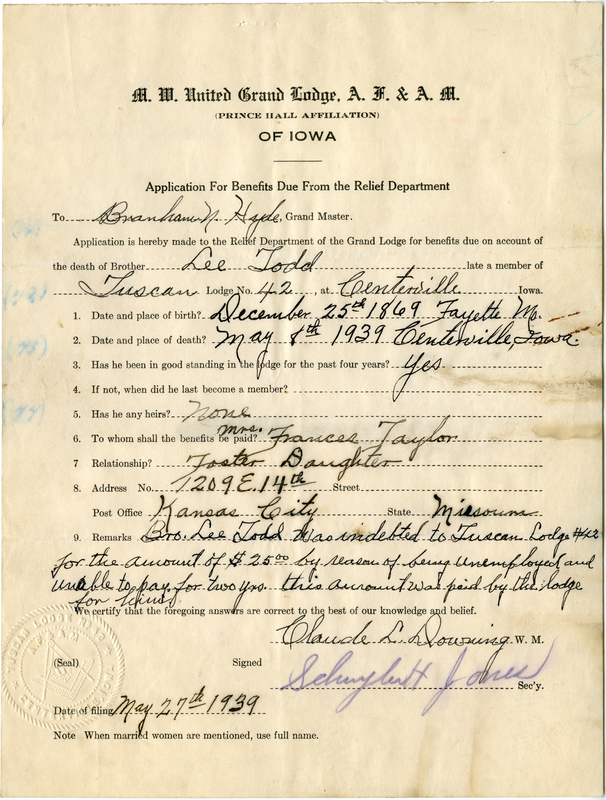 M. W. United Grand Lodge, A. F. & A. M.
(PRINCE HALL AFFILIATION)
OF IOWA
Application For Benefits Due From the Relief Department
To Branham N. Hyde, Grand Master.
Application is hereby made to the Relief Department of the Grand Lodge for benefits due on account of
the death of Brother Lee Todd late a member of
Tuscan Lodge No. 42, at Centerville Iowa.
1. Date and place of birth? December 25th 1869 Fayette Mo.
2. Date and place of death? May 8th 1939 Centerville, Iowa.
3. Has he been in good standing in the lodge for the past four years? Yes
4. If not, when did he last become a member?
5. Has he any heirs? None
6. To whom shall the benefits be paid? Mrs. Frances Taylor
7 Relationship? Foster Daughter
8. Address No. 1209 E. 14th Street
Post Office Kansas City State Missouri
9. Remarks Bro. Lee Todd was indebted to Tuscan Lodge #42
for the amount of $25.00 by reason of being unemployed and
unable to pay for two yrs. this amount was paid by the lodge
for him.
We certify that the foregoing answers are correct to the best of our knowledge and belief.
Claude L. Downing W. M.
(Seal) Signed
Jones Sec'y.
Date of filing May 27th 1939
Note When married women are mentioned, use full name.